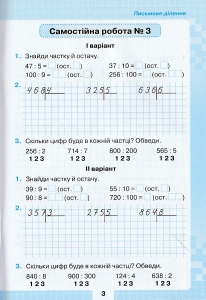 Письмове ділення
Самостійна робота № 3
I варіант
1. Знайди частку й остачу.
47 : 5 = (ост. ) 37 : 10 = (ост. )
100 : 9 = (ост. ) 256 : 100 = (ост. )
2. 4684 3255 6366
3. Скільки цифр буде в кожній частці? Обведи.
256 : 2 714 : 7 800 : 200 565 : 5
1 2 3 1 2 3 1 2 3 1 2 3
II варіант
1. Знайди частку й остачу.
39 : 9 = (ост. ) 55 : 10 = (ост. )
90 : 8 = (ост. ) 720 : 100 = (ост. )
2. 3573 2755 8648
3. Скільки цифр буде в кожній частці? Обведи.
840 : 8 900 : 300 124 : 4 638 : 2
1 2 3 1 2 3 1 2 3 1 2 3
3